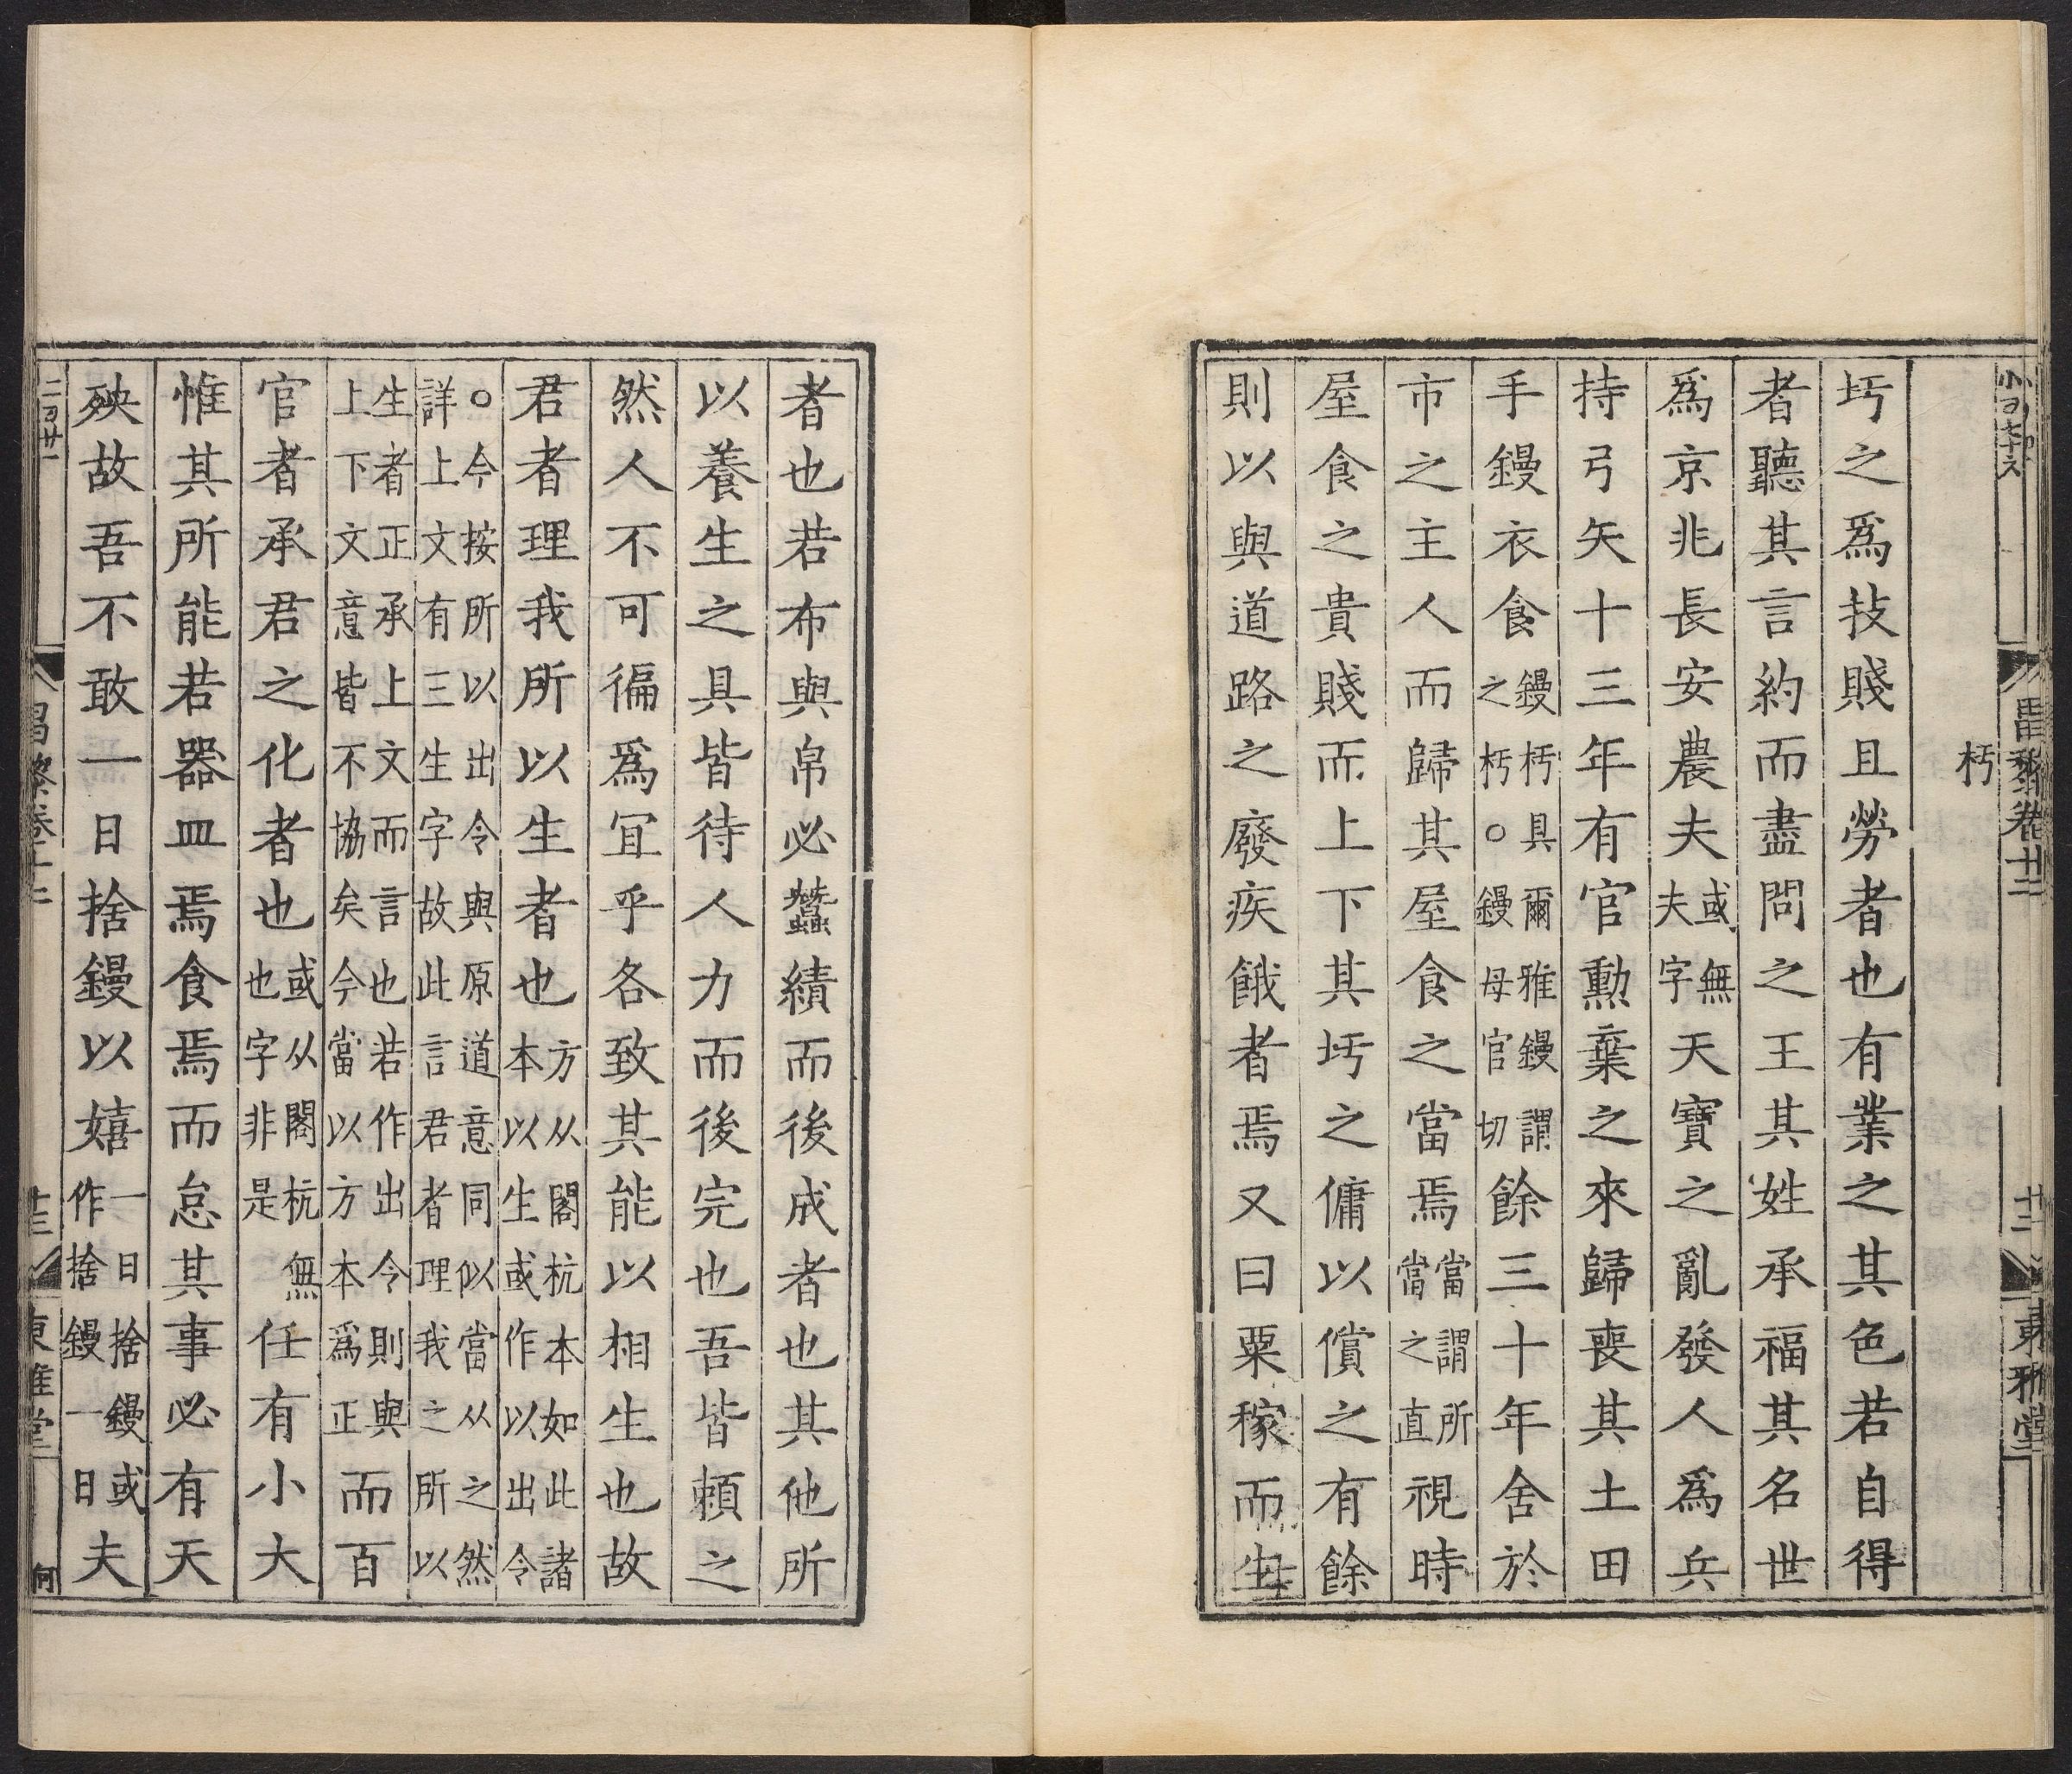 昌黎卷十二
十二
東雅堂
杇
圬之爲技賤且勞者也有業之其色若自得
者聽其言約而盡問之王其姓承福其名世
爲京兆長安農夫或無夫字天寶之亂發人爲兵
持弓矢十三年有官勳棄之來歸喪其土田
手鏝衣食鏝杇具爾雅鏝謂之杇○鏝母官切餘三十年舍於
市之主人而歸其屋食之當焉當謂所當之直視時
屋食之貴賤而上下其圬之傭以償之有餘
則以與道路之廢疾餓者焉又曰粟稼而生
者也若布與帛必蠶績而後成者也其他所
以養生之具皆待人力而後完也吾皆賴之
然人不可徧爲宜乎各致其能以相生也故
君者理我所以生者也方从閣杭本如此諸本以生或作以出令
○今按所以出令與原道意同似當从之然詳上文有三生字故此言君者理我之所以
生者正承上文而言也若作出令則與上下文意皆不協矣今當以方本爲正而百
官者承君之化者也或从閣杭無也字非是任有小大
惟其所能若器皿焉食焉而怠其事必有天
殃故吾不敢一日捨鏝以嬉一日捨鏝或作捨鏝一日夫
昌黎卷十二
十三
東雅堂
何